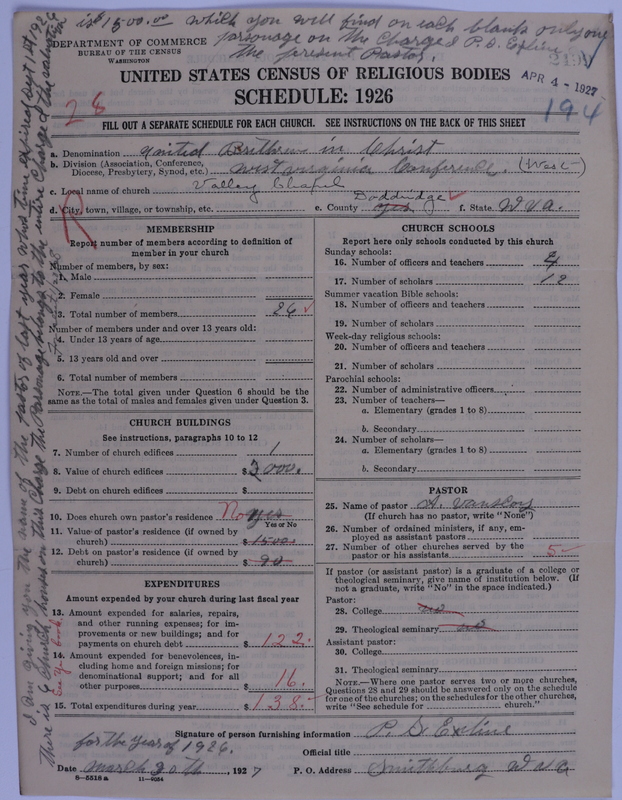 is $1500.00 which you will find on each blank only one
parsonage on the Charge P. S. Exline
the present Pastor.
DEPARTMENT OF COMMERCE
BUREAU OF THE CENSUS
WASHINGTON
UNITED STATES CENSUS OF RELIGIOUS BODIES
APR 4 - 1927
SCHEDULE: 1926
28
194
FILL OUT A SEPARATE SCHEDULE FOR EACH CHURCH. SEE INSTRUCTIONS ON THE BACK OF THIS SHEET
a. Denomination United Brethren in Christ
b. Division (Association, Conference, Diocese, Presbytery, Synod, etc.) West Virginia Conference. (West)
c. Local name of church Valley Chapel
d. City, town, village, or township, etc. e. County yes Doddridge f. State W Va.
MEMBERSHIP
Report number of members according to definition of
member in your church
Number of members, by sex:
1. Male
2. Female
3. Total number of members 26
Number of members under and over 13 years old:
4. Under 13 years of age
5. 13 years old and over
6. Total number of members
NOTE.—The total given under Question 6 should be the
same as the total of males and females given under Question 3.
CHURCH BUILDINGS
See instructions, paragraphs 10 to 12
7. Number of church edifices 1
8. Value of church edifices $3000.
9. Debt on church edifices $
10. Does church own pastor's residence No yes
Yes or No
11. Value of pastor's residence (if owned by
church) $1500.
12. Debt on pastor's residence (if owned by
church) $90
EXPENDITURES
Amount expended by your church during last fiscal year
13. Amount expended for salaries, repairs,
and other running expenses; for im-
provements or new buildings; and for
payments on church debt $122.
14. Amount expended for benevolences, in-
cluding home and foreign missions; for
denominational support; and for all
other purposes 16.
15. Total expenditures during year $138.
CHURCH SCHOOLS
Report here only schools conducted by this church
Sunday schools:
16. Number of officers and teachers 4
17. Number of scholars 12
Summer vacation Bible schools:
18. Number of officers and teachers
19. Number of scholars
Week-day religious schools:
20. Number of officers and teachers
21. Number of scholars
Parochial schools:
22. Number of administrative officers
23. Number of teachers—
a. Elementary (grades 1 to 8)
b. Secondary
24. Number of scholars—
a. Elementary (grades 1 to 8)
b. Secondary
PASTOR
25. Name of pastor A. Vanscoy
(If church has no pastor, write "None")
26. Number of ordained ministers, if any, em-
ployed as assistant pastors
27. Number of other churches served by the
pastor or his assistants 5
If pastor (or assistant pastor) is a graduate of a college or
theological seminary, give name of institution below. (If
not a graduate, write "No" in the space indicated.)
Pastor:
28. College no
29. Theological seminary no
Assistant pastor:
30. College
31. Theological seminary
NOTE.—Where one pastor serves two or more churches,
Questions 28 and 29 should be answered only on the schedule
for one of the churches; on the schedules for the other churches,
write "See schedule for church."
Signature of person furnishing information P. S. Exline
for the year of 1926.
Official title
Date March 30th, 1927 P. O. Address Smithburg W Va
S—5518 a 11—9054
I am giving you the name of the pastor of last year whose time expired Sept 1st, 1926
There is 6 Church houses on this Charge the Parsonage belongs to the entire Charge